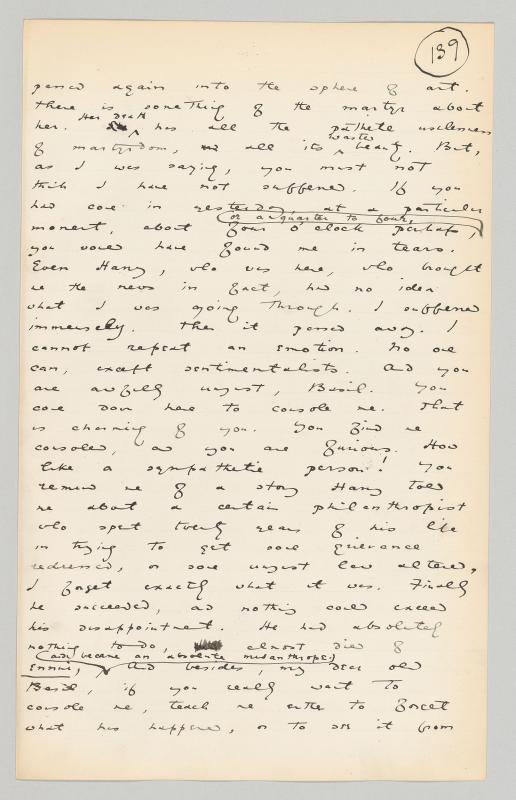 139
passed again into the sphere of art.
There is something of the martyr about
her. Her death has all the pathetic uselessness
of martyrdom, all its wasted beauty. But,
as I was saying, you must not
think I have not suffered. If you
had come in yesterday, at a particular
moment, about four o'clock perhaps, or a quarter to four,
you would have found me in tears.
Even Harry, who was here, who brought
me the news in fact, had no idea
what I was going through. I suffered
immensely. Then it passed away. I
cannot repeat an emotion. No one
can, except sentimentalists. And you
are awfully unjust, Basil. You
come down here to console me. That
is charming of you. You find me
consoled, and you are furious. How
like a sympathetic person! You
remind me of a story Harry told
me about a certain philanthropist
who spent twenty years of his life
in trying to get some grievance
redressed, or some unjust law altered,
I forget exactly what it was. Finally
he succeeded, and nothing could exceed
his disappointment. He had absolutely
nothing to do, almost died of
ennui, and became an absolute misanthrope. And besides, my dear old
Basil, if you really want to
console me, teach me rather to forget
what has happened, or to see it from